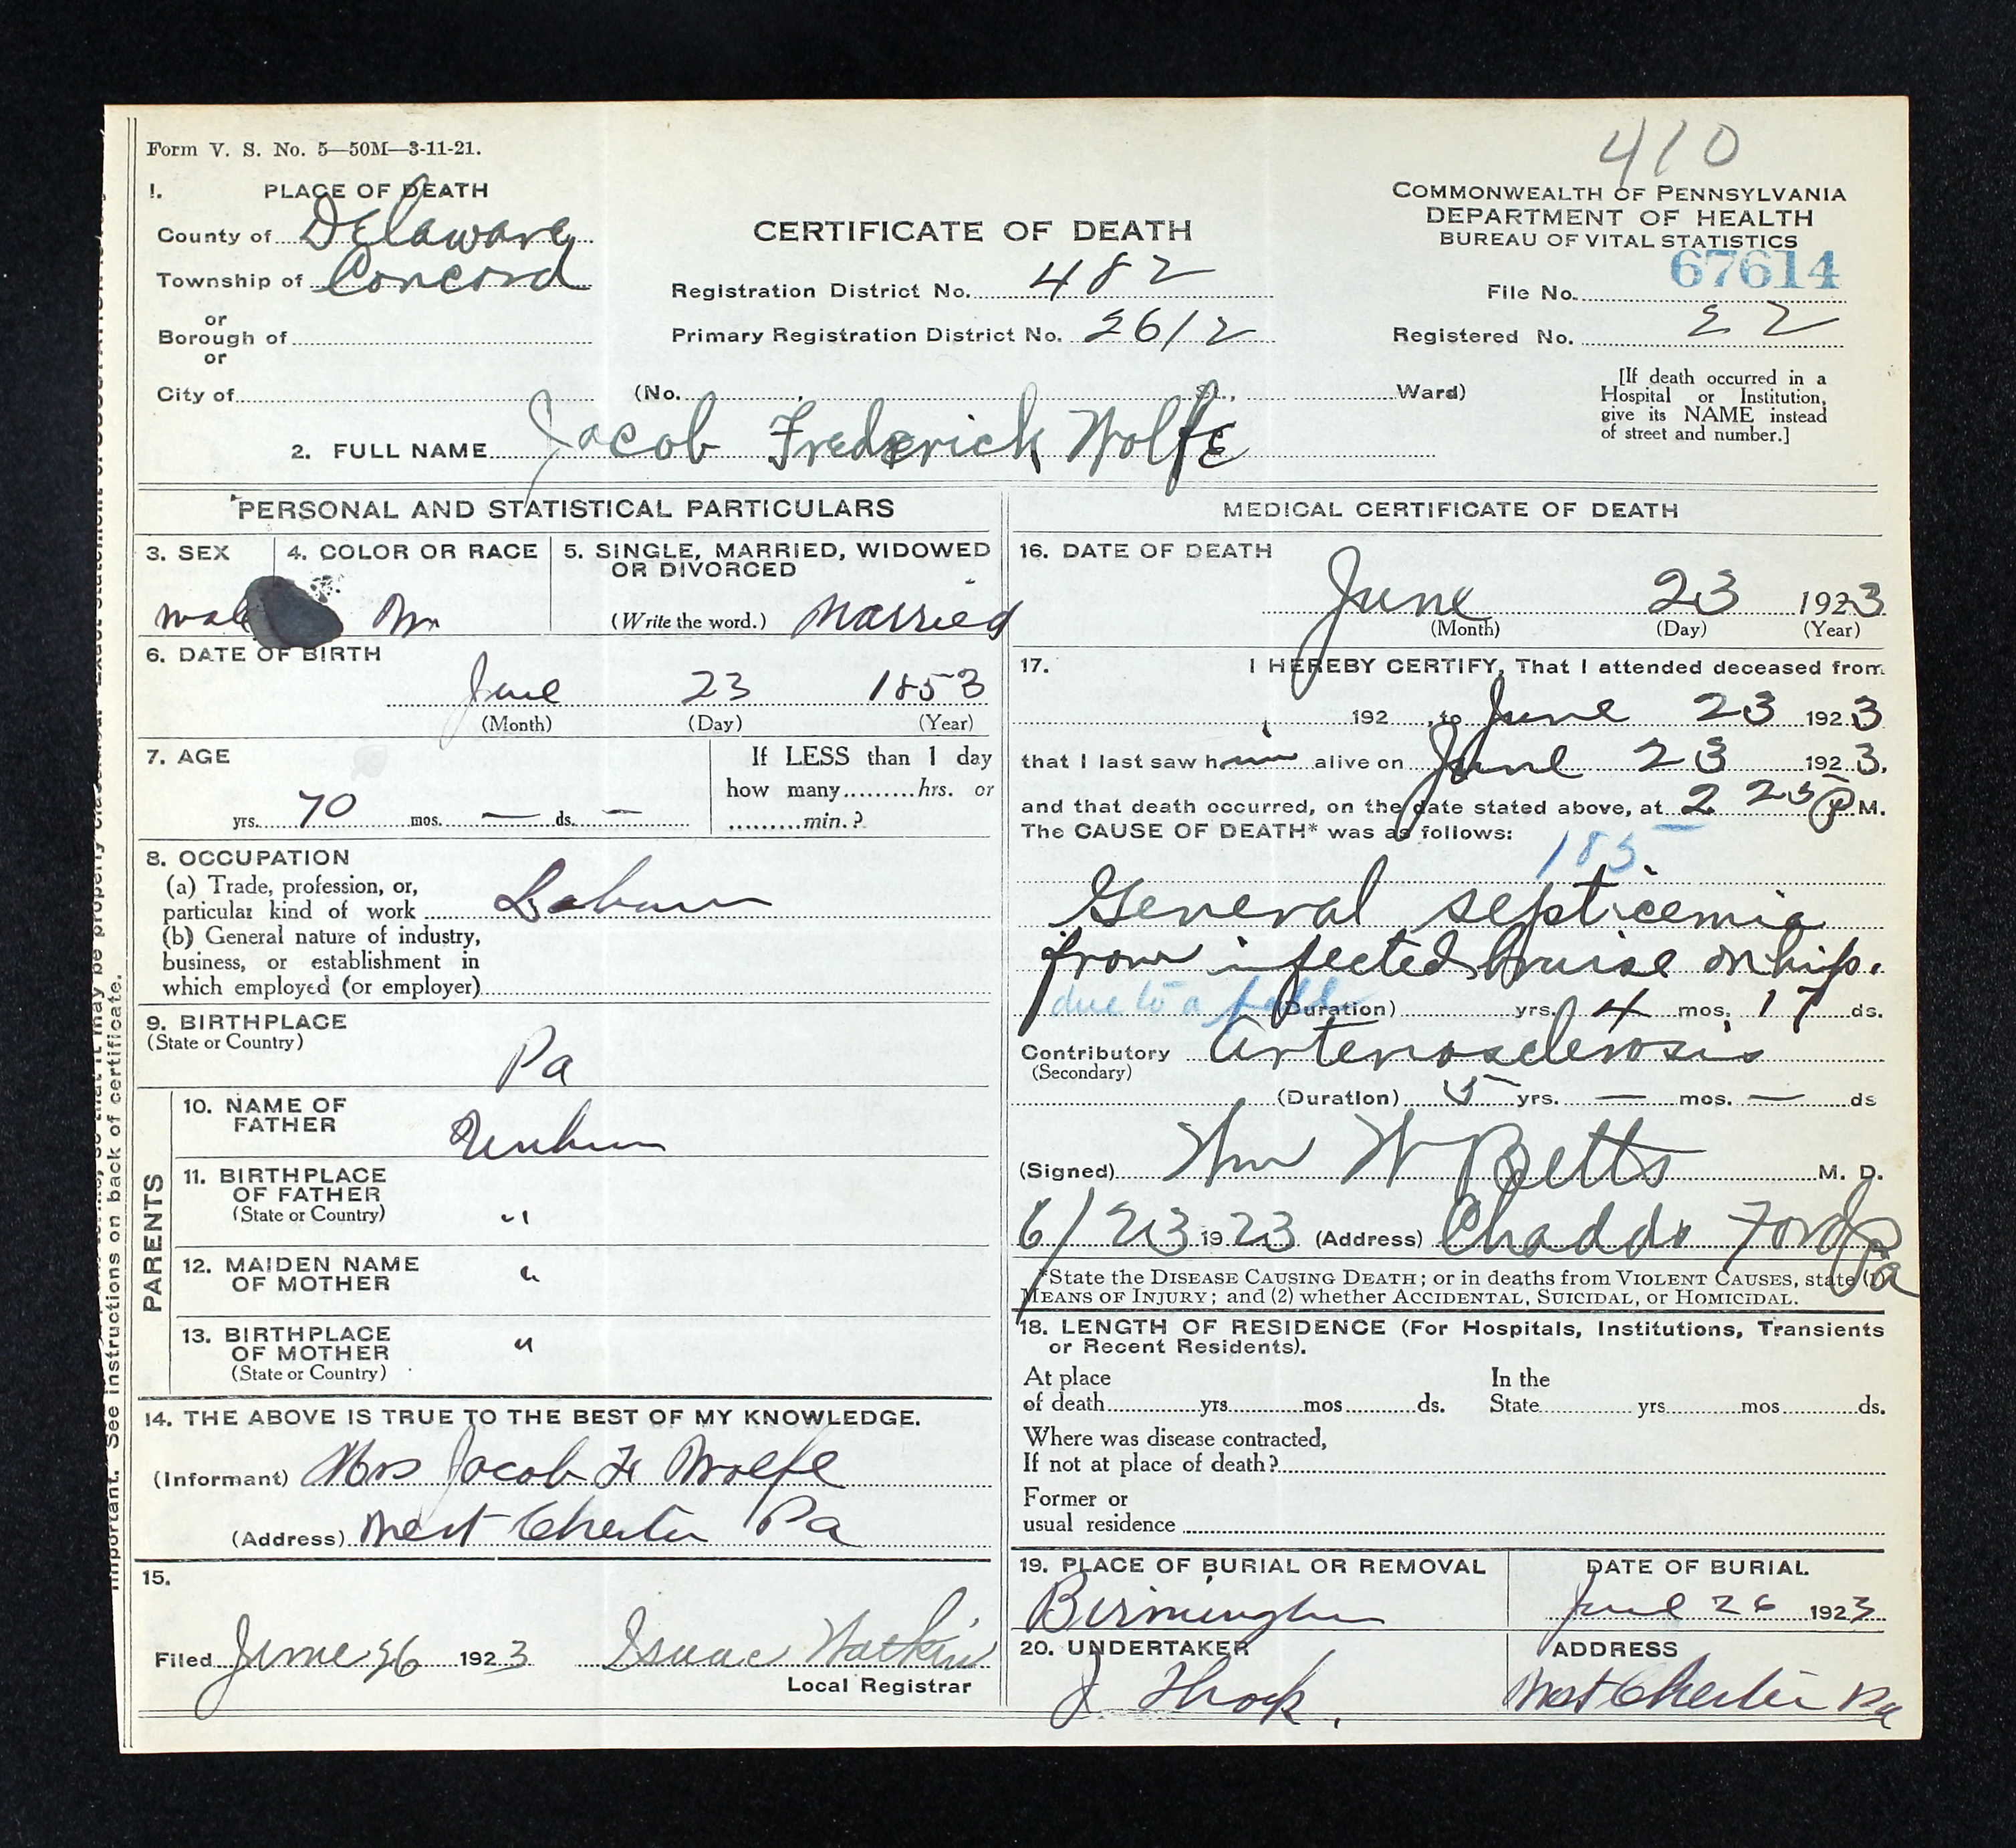 410
Form V. S. No. 5—50M—3-11-21.
1. PLACE OF DEATH
County of Delaware
Township of Concord
or
Borough of
or
City of
CERTIFICATE OF DEATH
Registration District No. 482
Primary Registration District No. 2612
(No. , St., Ward)
COMMONWEALTH OF PENNSYLVANIA
DEPARTMENT OF HEALTH
BUREAU OF VITAL STATISTICS
File No. 67614
Registered No. 22
[If death occurred in a
Hospital or Institution,
give its NAME instead
of street and number.]
2. FULL NAME Jacob Frederick Wolfe
PERSONAL AND STATISTICAL PARTICULARS
3. SEX
male
4. COLOR OR RACE
5. SINGLE, MARRIED, WIDOWED
OR DIVORCED
(Write the word.) Married
6. DATE OF BIRTH
June 23 1853
(Month) (Day) (Year)
7. AGE
70 yrs. — mos. — ds.
If LESS than 1 day
how many hrs. or
min.?
8. OCCUPATION
(a) Trade, profession, or,
particular kind of work
(b) General nature of industry,
business, or establishment in
which employed (or employer)
9. BIRTHPLACE
(State or Country)
Pa
PARENTS
10. NAME OF
FATHER
11. BIRTHPLACE
OF FATHER
(State or Country)
"
12. MAIDEN NAME
OF MOTHER
"
13. BIRTHPLACE
OF MOTHER
(State or Country)
"
14. THE ABOVE IS TRUE TO THE BEST OF MY KNOWLEDGE.
(Informant) Mrs Jacob F. Wolfe
(Address) West Chester Pa
15.
Filed June 26 1923 Isaac Watkin
Local Registrar
MEDICAL CERTIFICATE OF DEATH
16. DATE OF DEATH
June 23 1923
(Month) (Day) (Year)
17. I HEREBY CERTIFY, That I attended deceased from
192 , to June 23 1923
that I last saw him alive on June 23 1923,
and that death occurred, on the date stated above, at 2 P M.
The CAUSE OF DEATH* was as follows:
185
General septicemia
from infected bruise on hip.
due to a fall
(Duration) yrs. 4 mos. 17 ds.
Contributory Arteriosclerosis
(Secondary)
(Duration) 5 yrs. — mos. — ds
(Signed) Wm W Betts M. D.
6/23 1923 (Address) Chadds Ford Pa
*State the DISEASE CAUSING DEATH; or in deaths from VIOLENT CAUSES, state (1)
MEANS OF INJURY; and (2) whether ACCIDENTAL, SUICIDAL, or HOMICIDAL.
18. LENGTH OF RESIDENCE (For Hospitals, Institutions, Transients
or Recent Residents).
At place
of death yrs mos ds.
In the
State yrs mos ds.
Where was disease contracted,
If not at place of death?
Former or
usual residence
19. PLACE OF BURIAL OR REMOVAL
Birmingham
DATE OF BURIAL
June 26 1923
20. UNDERTAKER
J
ADDRESS
West Chester Pa
important. See instructions on back of certificate.